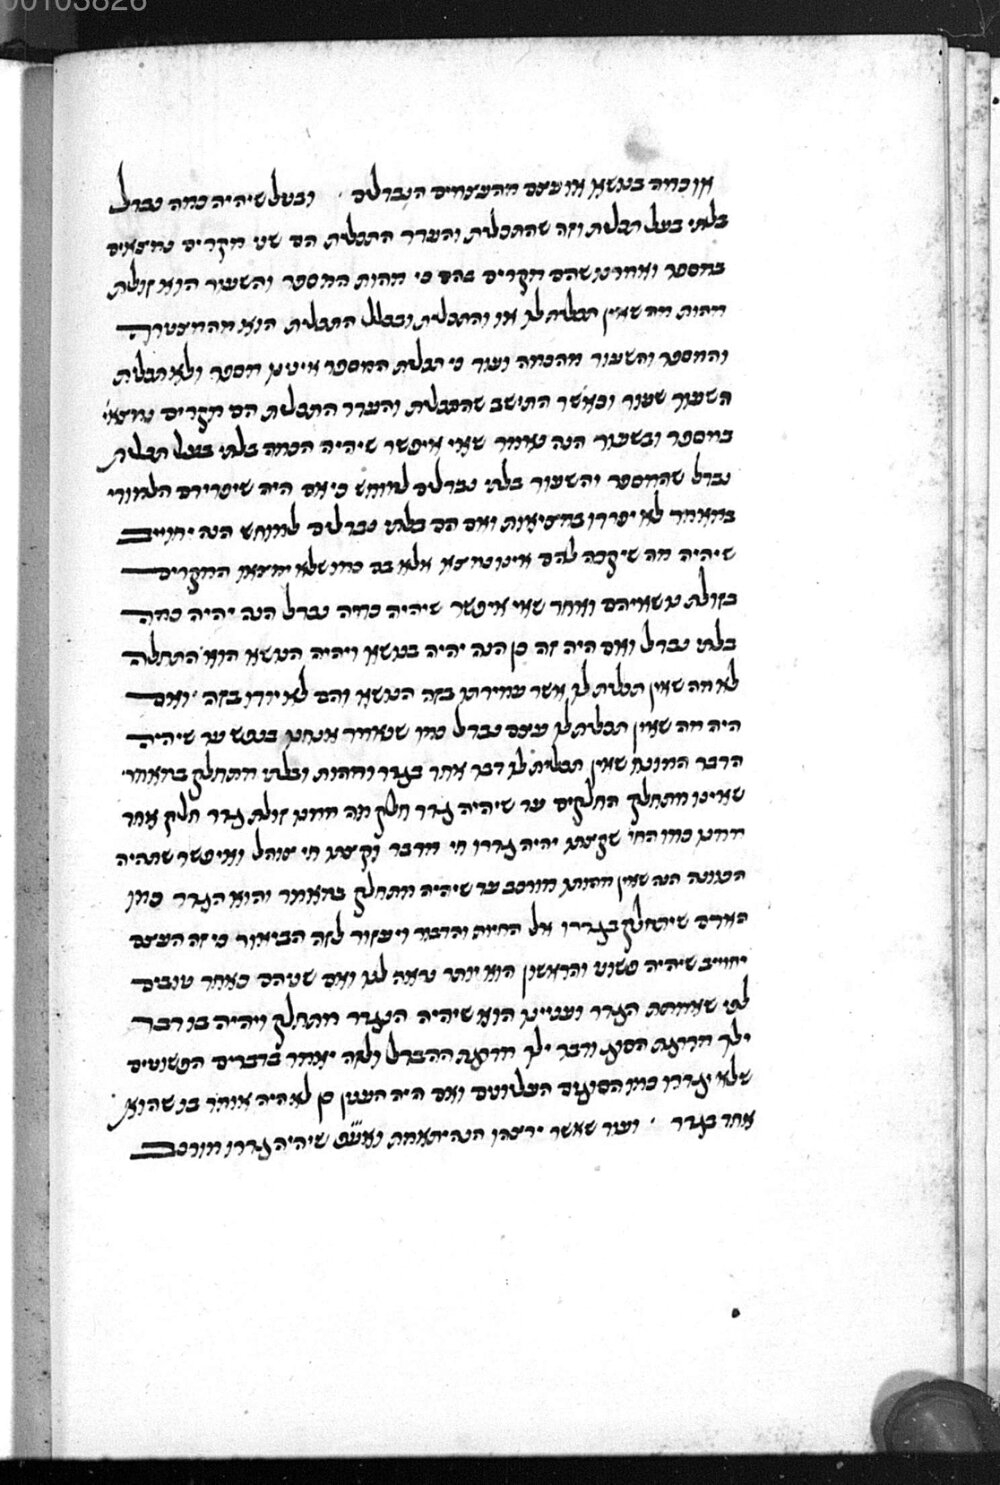 00103826
או כמה בנושא או עצם מהעצמים הנבדלים ובטל שיהיה כמה נבדל
בלתי בעל תכלית וזה שהתכלית והעדר התכלית הם שני מקרים נמצאים
במספר ואחר שהם מקרים בהם כי מהות המספר והשעור הוא זולת
מהות מה שאין תכלית לו או והתכלית ובכלל התכלית הוא מהמצטרף
והמספר והשעור מהכמה ועוד כי תכלית המספר איננו מספר ולא תכלית
השעור שעור וכאשר התישב שהתכלית והעדר התכלית הם מקרים נמצאי'
במספר ובשעור הנה נאמר שאי איפשר שיהיה הכמה בלתי בעל תכלית
נבדל שהמספר והשעור בלתי נבדלים למוחש כי אם היה שיפרידם הלמודי
במאמר לא יפרדו במציאות ואם הם בלתי נבדלים למוחש הנה יחוייב
שיהיה מה שיקרה להם אינו נמצא אלא בם כמו שלא ימצאו המקרים
בזולת נושאיהם ואחר שאי איפשר שיהיה כמה נבדל הנה יהיה כמה
בלתי נבדל ואם היה זה כן הנה יהיה בנושא ויהיה הנושא הוא התחלה
לא מה שאין תכלית לו אשר עמידתו בזה הנושא והם לא יודו בזה ואם
היה מה שאין תכלית לו עצם נבדל כמו שנאמר אנחנו בנפש עד שיהיה
הדבר המונח שאין תכלית לו דבר אחד בגדר ומהות ובלתי מתחלק במאמר
שאינו מתחלק החלקים עד שיהיה גדר חלק מה ממנו זולת גדר חלק אחר
ממנו כמו החי שקצתו יהיה גדרו חי מדבר וקצתו חי צוהל ואיפשר שתהיה
הכונה הנה שאין מהותו מורכב עד שיהיה מתחלק במאמר והוא הגדר כמו
האדם שיתחלק בגדרו אל החיות והדבור ויעזור לזה הביאור כי זה העצם
יחוייב שיהיה פשוט והראשון הוא יותר נראה לנו ואם שניהם כאחד טובים
לפי שאמתת הגדר ועניינו הוא שיהיה הגדר מתחלק ויהיה בו דבר
ילך מדרגת הסוג ודבר ילך מדרגת ההבדל ולזה יאמר בדברים הפשוטים
שלא יגדרו כמו הסוגים העליונים ואם היה הענין כן לא היה אומר בו שהוא
אחד בגדר ועוד שאשר ירצהו הנה יתאמת ואע"פ שיהיה גדרו מורכב